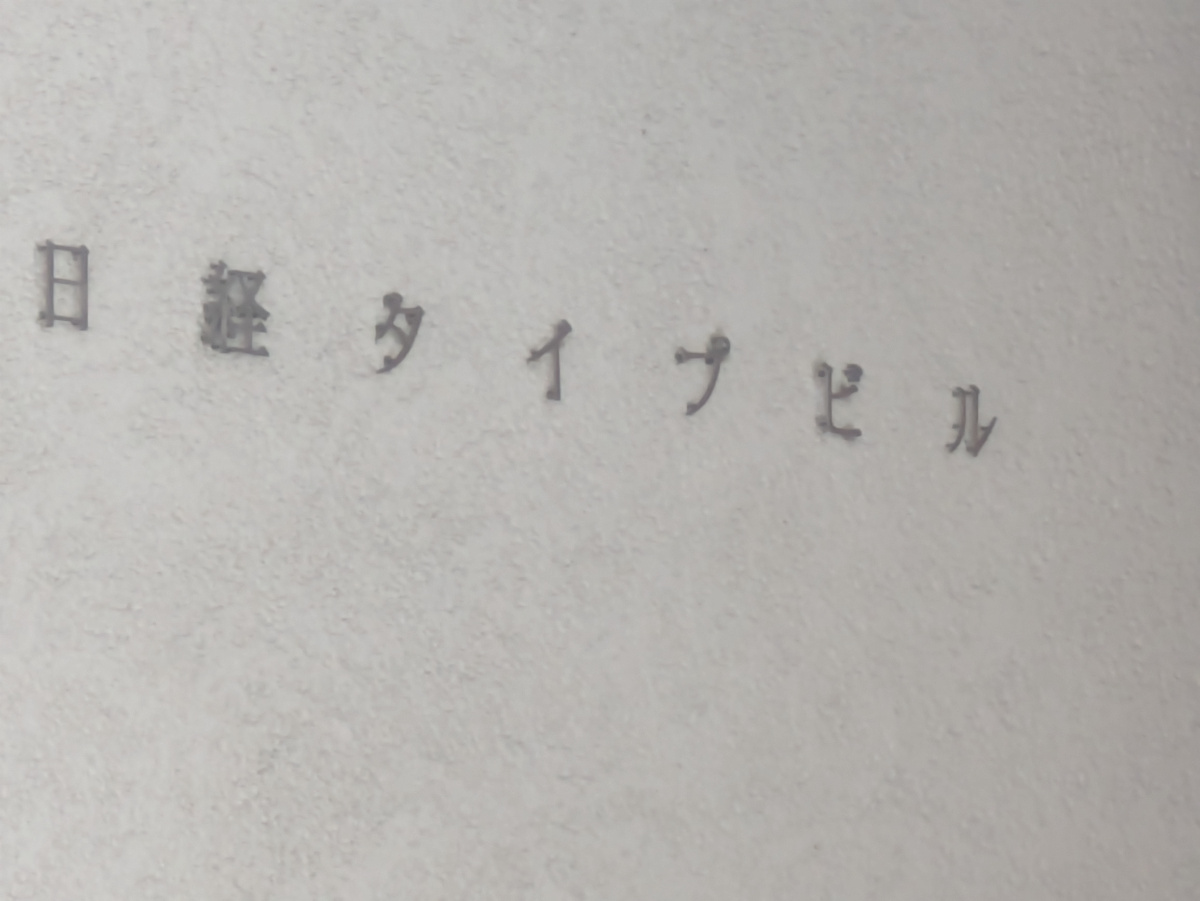 日経タイプビル